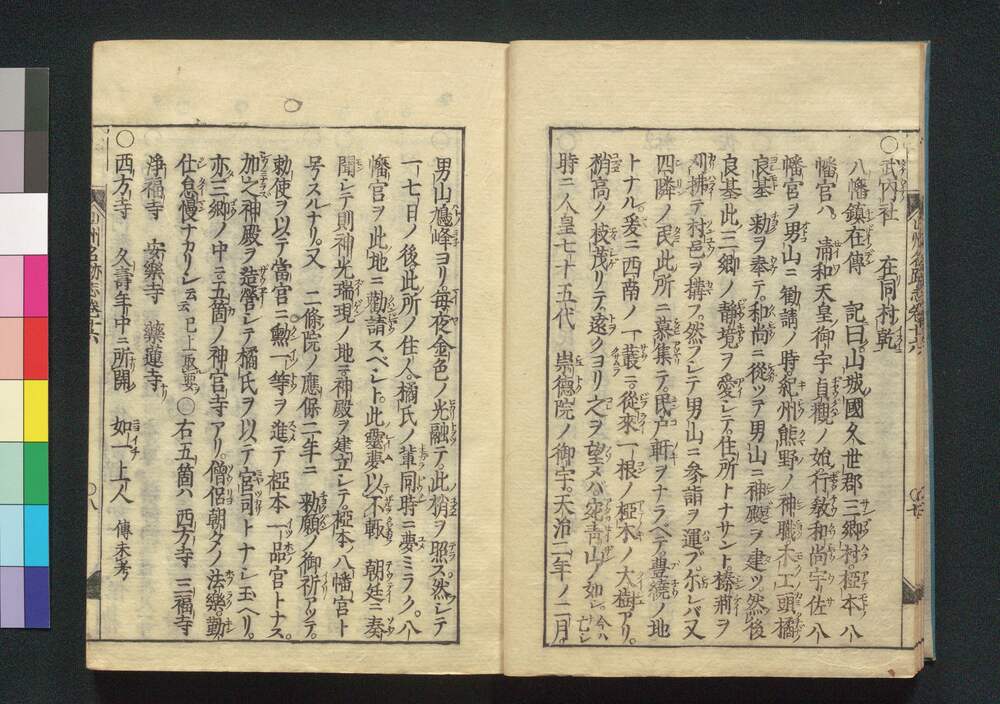 ○武内社 在同村乾
八幡鎮在傳 記曰山城國久世郡三郷村椏本八
幡宮ハ 清和天皇御宇貞觀ノ始行敎和尚宇佐八
幡宮ヲ男山ニ勧請ノ時紀州熊野ノ神職木工頭橘
良基 勅ヲ奉テ和尚ニ從ツテ男山ニ神殿ヲ建ツ然後
良基此三郷ノ靜境ヲ愛シテ住所トナサント榛荊ヲ
刈拂テ村邑ヲ搆フ然フシテ男山ニ參詣ヲ運ブ尓レバ又
四隣ノ民此所ニ慕集テ民戸軒ヲナラベテ豊繞ノ地
トナル爰ニ西南ノ一叢ニ從來一根ノ椏木ノ大樹アリ
稍高ク枝茂リテ遠クヨリ之ヲ望メバ宛青山ノ如シ今ハ亡シ
時ニ人皇七十五代 崇德院ノ御宇天治二年ノ二月
男山鳩峰ヨリ毎夜金色ノ光融テ此梢ヲ照ス然シテ
一七日ノ後此所ノ住人橘氏ノ輩同時ニ夢ミラク八
幡宮ヲ此地ニ勸請スベシト此靈夢以不輙 朝廷ニ奏
聞シテ則神光瑞現ノ地ニ神殿ヲ建立シテ椏本ノ八幡宮ト
号スルナリ又 二條院ノ應保二年ニ 勅願ノ御祈アリテ
勅使ヲ以テ當宮ニ勲一等ヲ進テ椏本一品宮トナス
加之神殿ヲ造營シテ橘氏ヲ以テ宮司トナシ玉ヘリ
亦三郷ノ中ニ五箇ノ神宮寺アリ僧侶朝夕ノ法樂勤
仕怠慢ナカリシ云云已上取要○右五箇ハ 西方寺 三福寺
淨福寺 安樂寺 藥蓮寺ナリ
○西方寺 久壽年中ニ所開 如一上人 傳未考